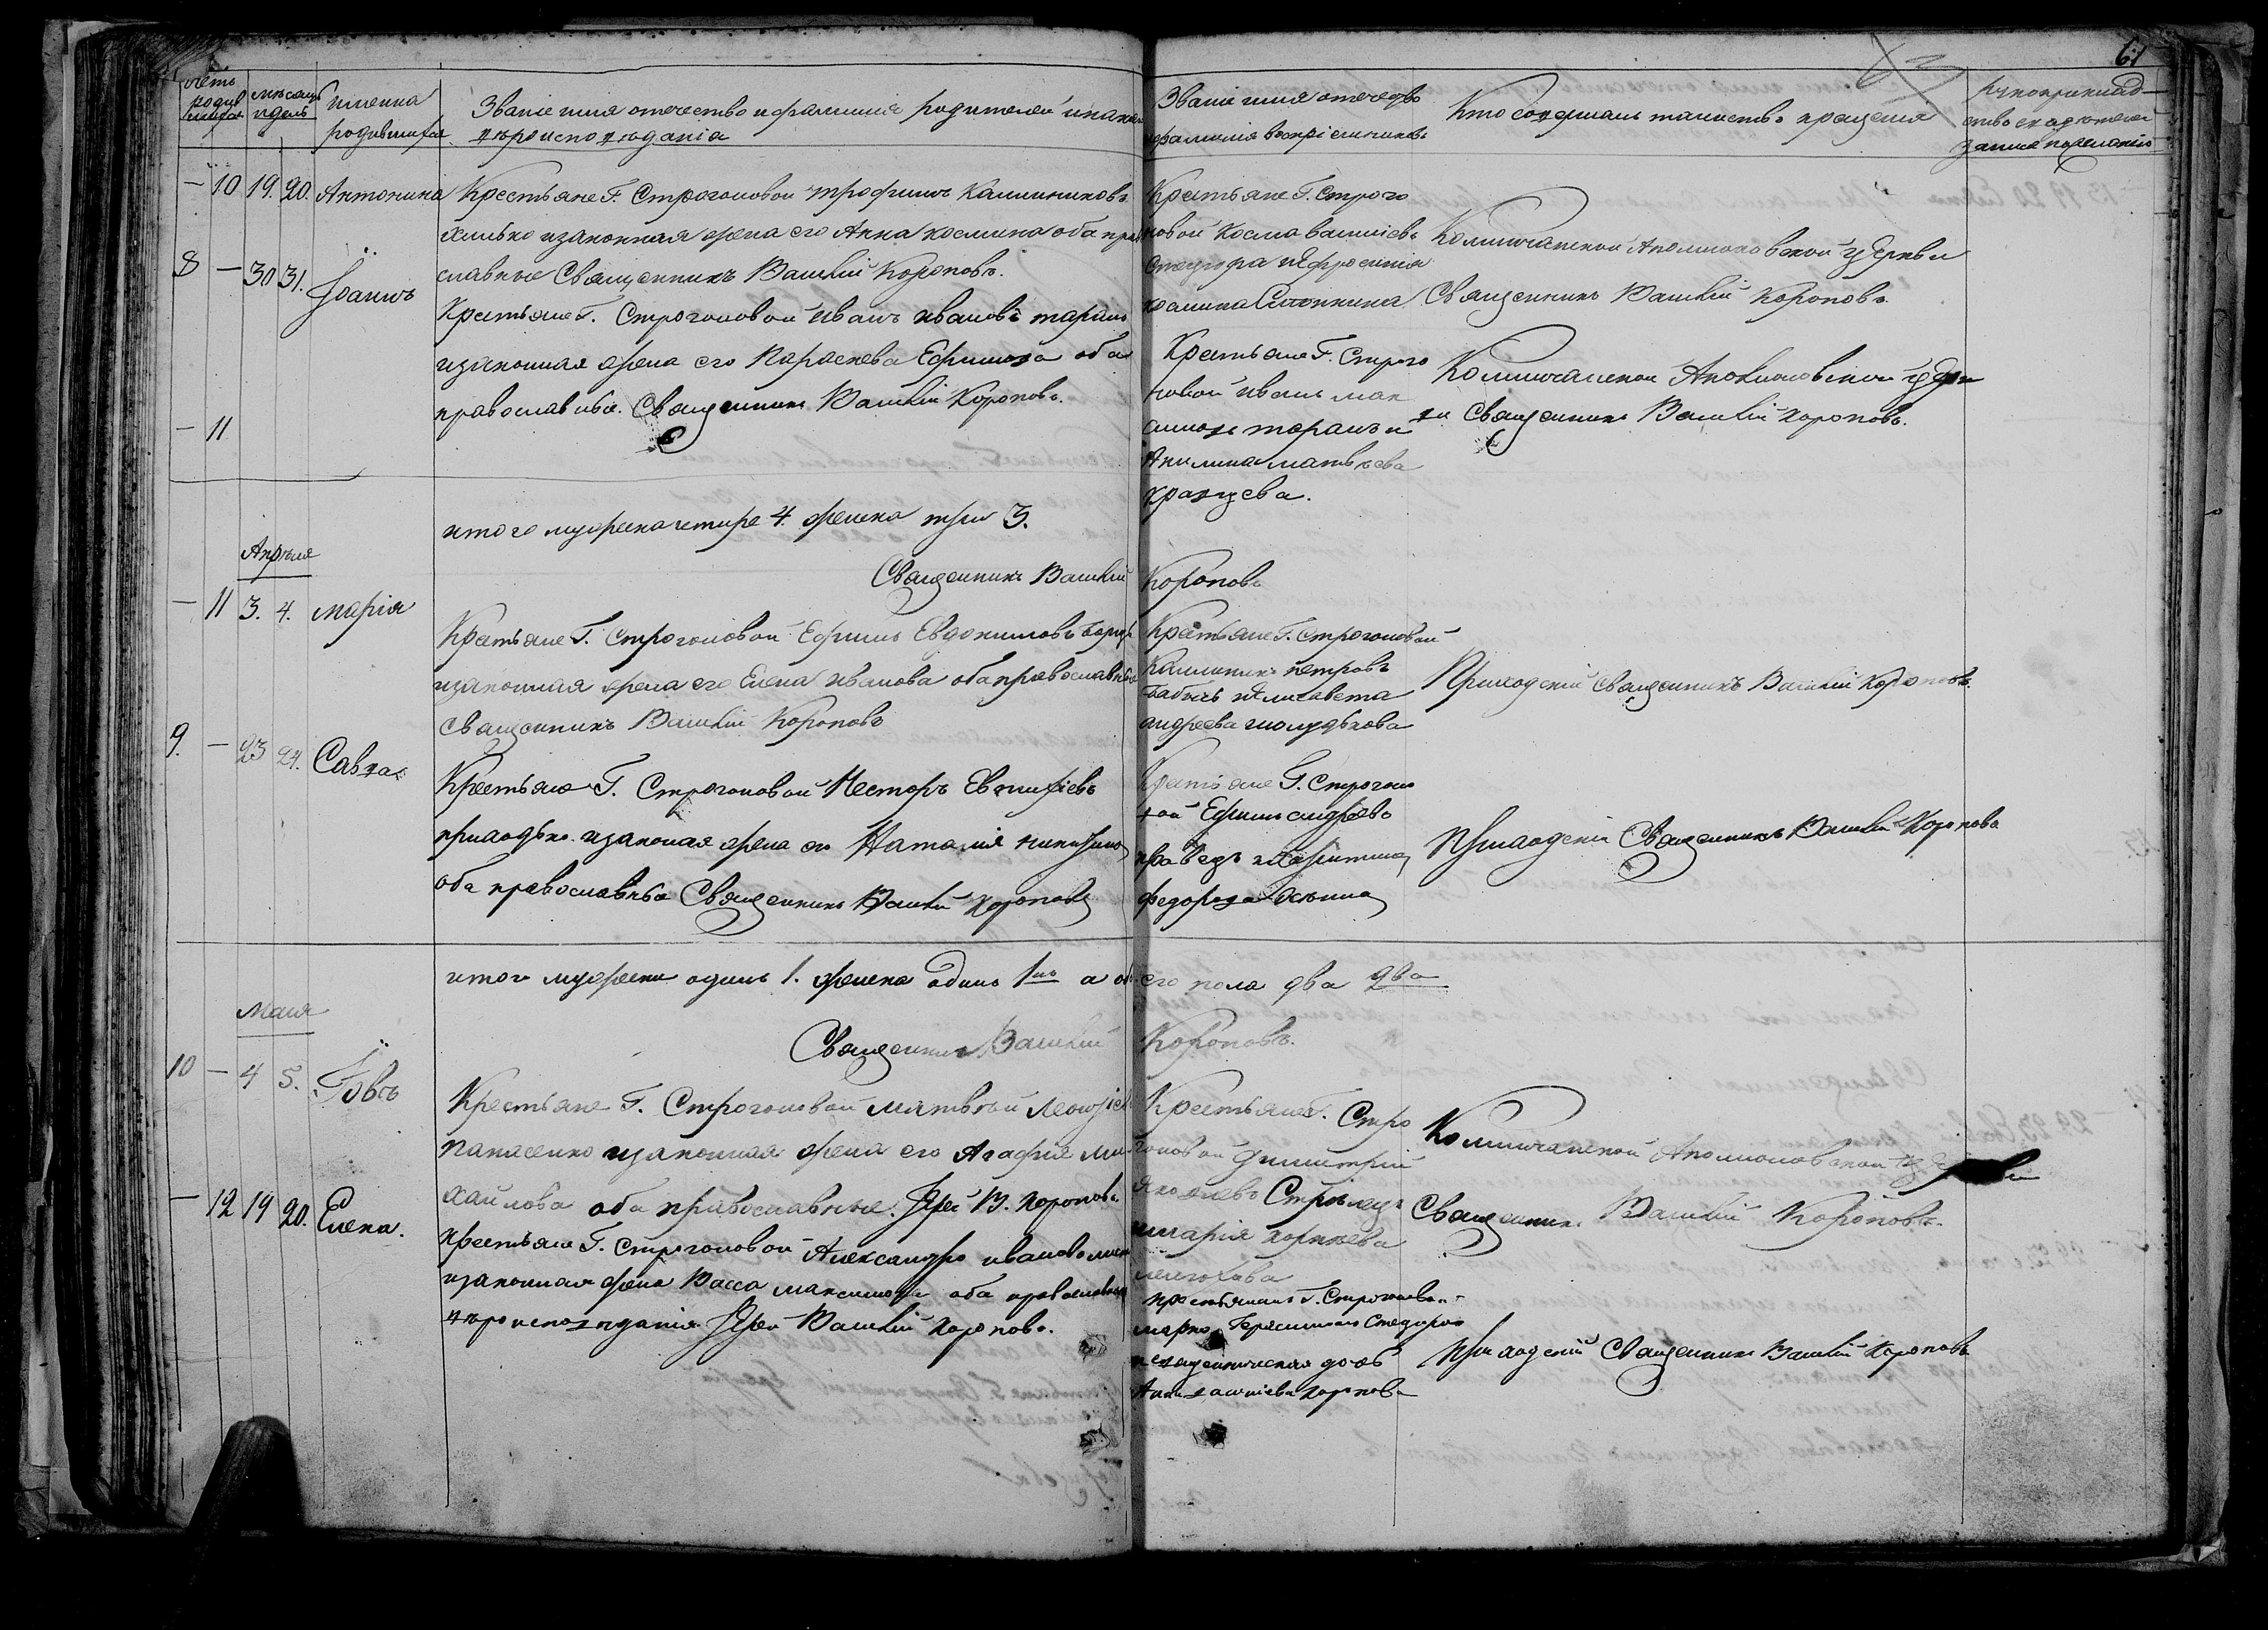 61
счетъ родив шихся
месяцъ и день
имена родившихся
Званіе имя отечество и фамиліи родителей и какого въроисповъданія
Званіе имя отечество и фамилія воспріемниковъ
Кто совершалъ таинство крещенія
рукоприклад ство свидетелей записи по желанію
— 10 19. 20. Антонина
Крестьяне Г. Строгоновой трофимъ Калинниковъ
хилько и законная жена его Анна космина оба право
славные Священникъ Василій Короповъ.
Крестьяне Г. Строго
новой Косма василіевъ
и Ефросинія
Калиничанской Аполлоновской церкви
Священникъ Василій Короповъ.
8 — 30 31. Іоаннъ
Крестьяне Г. Строгоновой иванъ ивановъ таранъ
и законная жена его Параскева Ефимова оба
православные. Священникъ Василій Короповъ.
Крестьяне Г. Строго
новой иванъ мак
симовъ таранъ и
Акилина матвѣева
кравцева.
Аполлоновской церк
ви Священникъ Василій Короповъ.
— 11
итого мужеска четыре 4. женска три 3.
Священникъ Василій Короповъ
Апрѣля
— 11 3. 4. марія
Крестьяне Г. Строгоновой Ефимъ Евдокимовъ
и законная жена его Елена иванова оба православные
Священникъ Василій Короповъ
Крестьяне Г. Строгоновой
Калинникъ петровъ
бабичъ и Елисавета
андреева шолудькова
Приходскій Священникъ Василій Короповъ.
9. — 23 24. Савва
Крестьяне Г. Строгоновой Несторъ Евтихіевъ
приходько и законая жена его Наталія никитина
оба православные Священникъ Василій Короповъ
Крестьяне Г. Строгоно
вой Ефимъ андреевъ
федорова
Приходскій Священникъ Василій Короповъ
итого мужеска одинъ 1. женска одинъ 1нъ а обоего пола два два
Священникъ Василій Короповъ.
Мая
10 — 4 5. Іовъ
Крестьяне Г. Строгоновой матвѣй Леонтіевъ
панасенко и законная жена его Агафія ми
хайлова оба православные. Іерей В. Короповъ.
Крестьяне Г. Стро
гоновой димитрій
яковлевъ Стрѣлецъ
и марія корнеева
Калиничанской Аполлоновской церкви
Священникъ Василій Короповъ.
— 12 19 20. Елена.
крестьяне Г. Строгоновой Александръ ивановъ
и законная жена Васса максимова оба православнаго
въроисповъданія Іерей Василій Короповъ.
крестьянинъ Г. Строгоновой
марко Герасимовъ
и священническая дочь
Анна василіева коропова
Приходскій Священникъ Василій Короповъ